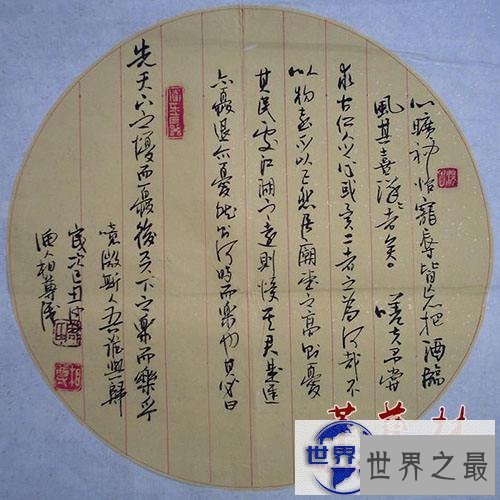 心曠神怡寵辱皆忘把酒臨
風其喜洋〻者矣 嗟夫予嘗
求古仁人之心或異二者之為何哉不
以物喜不以己悲居廟堂之高則憂
其民處江湖之遠則憂其君是進
亦憂退亦憂然則何時而樂也其必曰
先天下之憂而憂後天下之樂而樂乎
噫微斯人吾誰與歸
歲次己丑
世界
世界之最